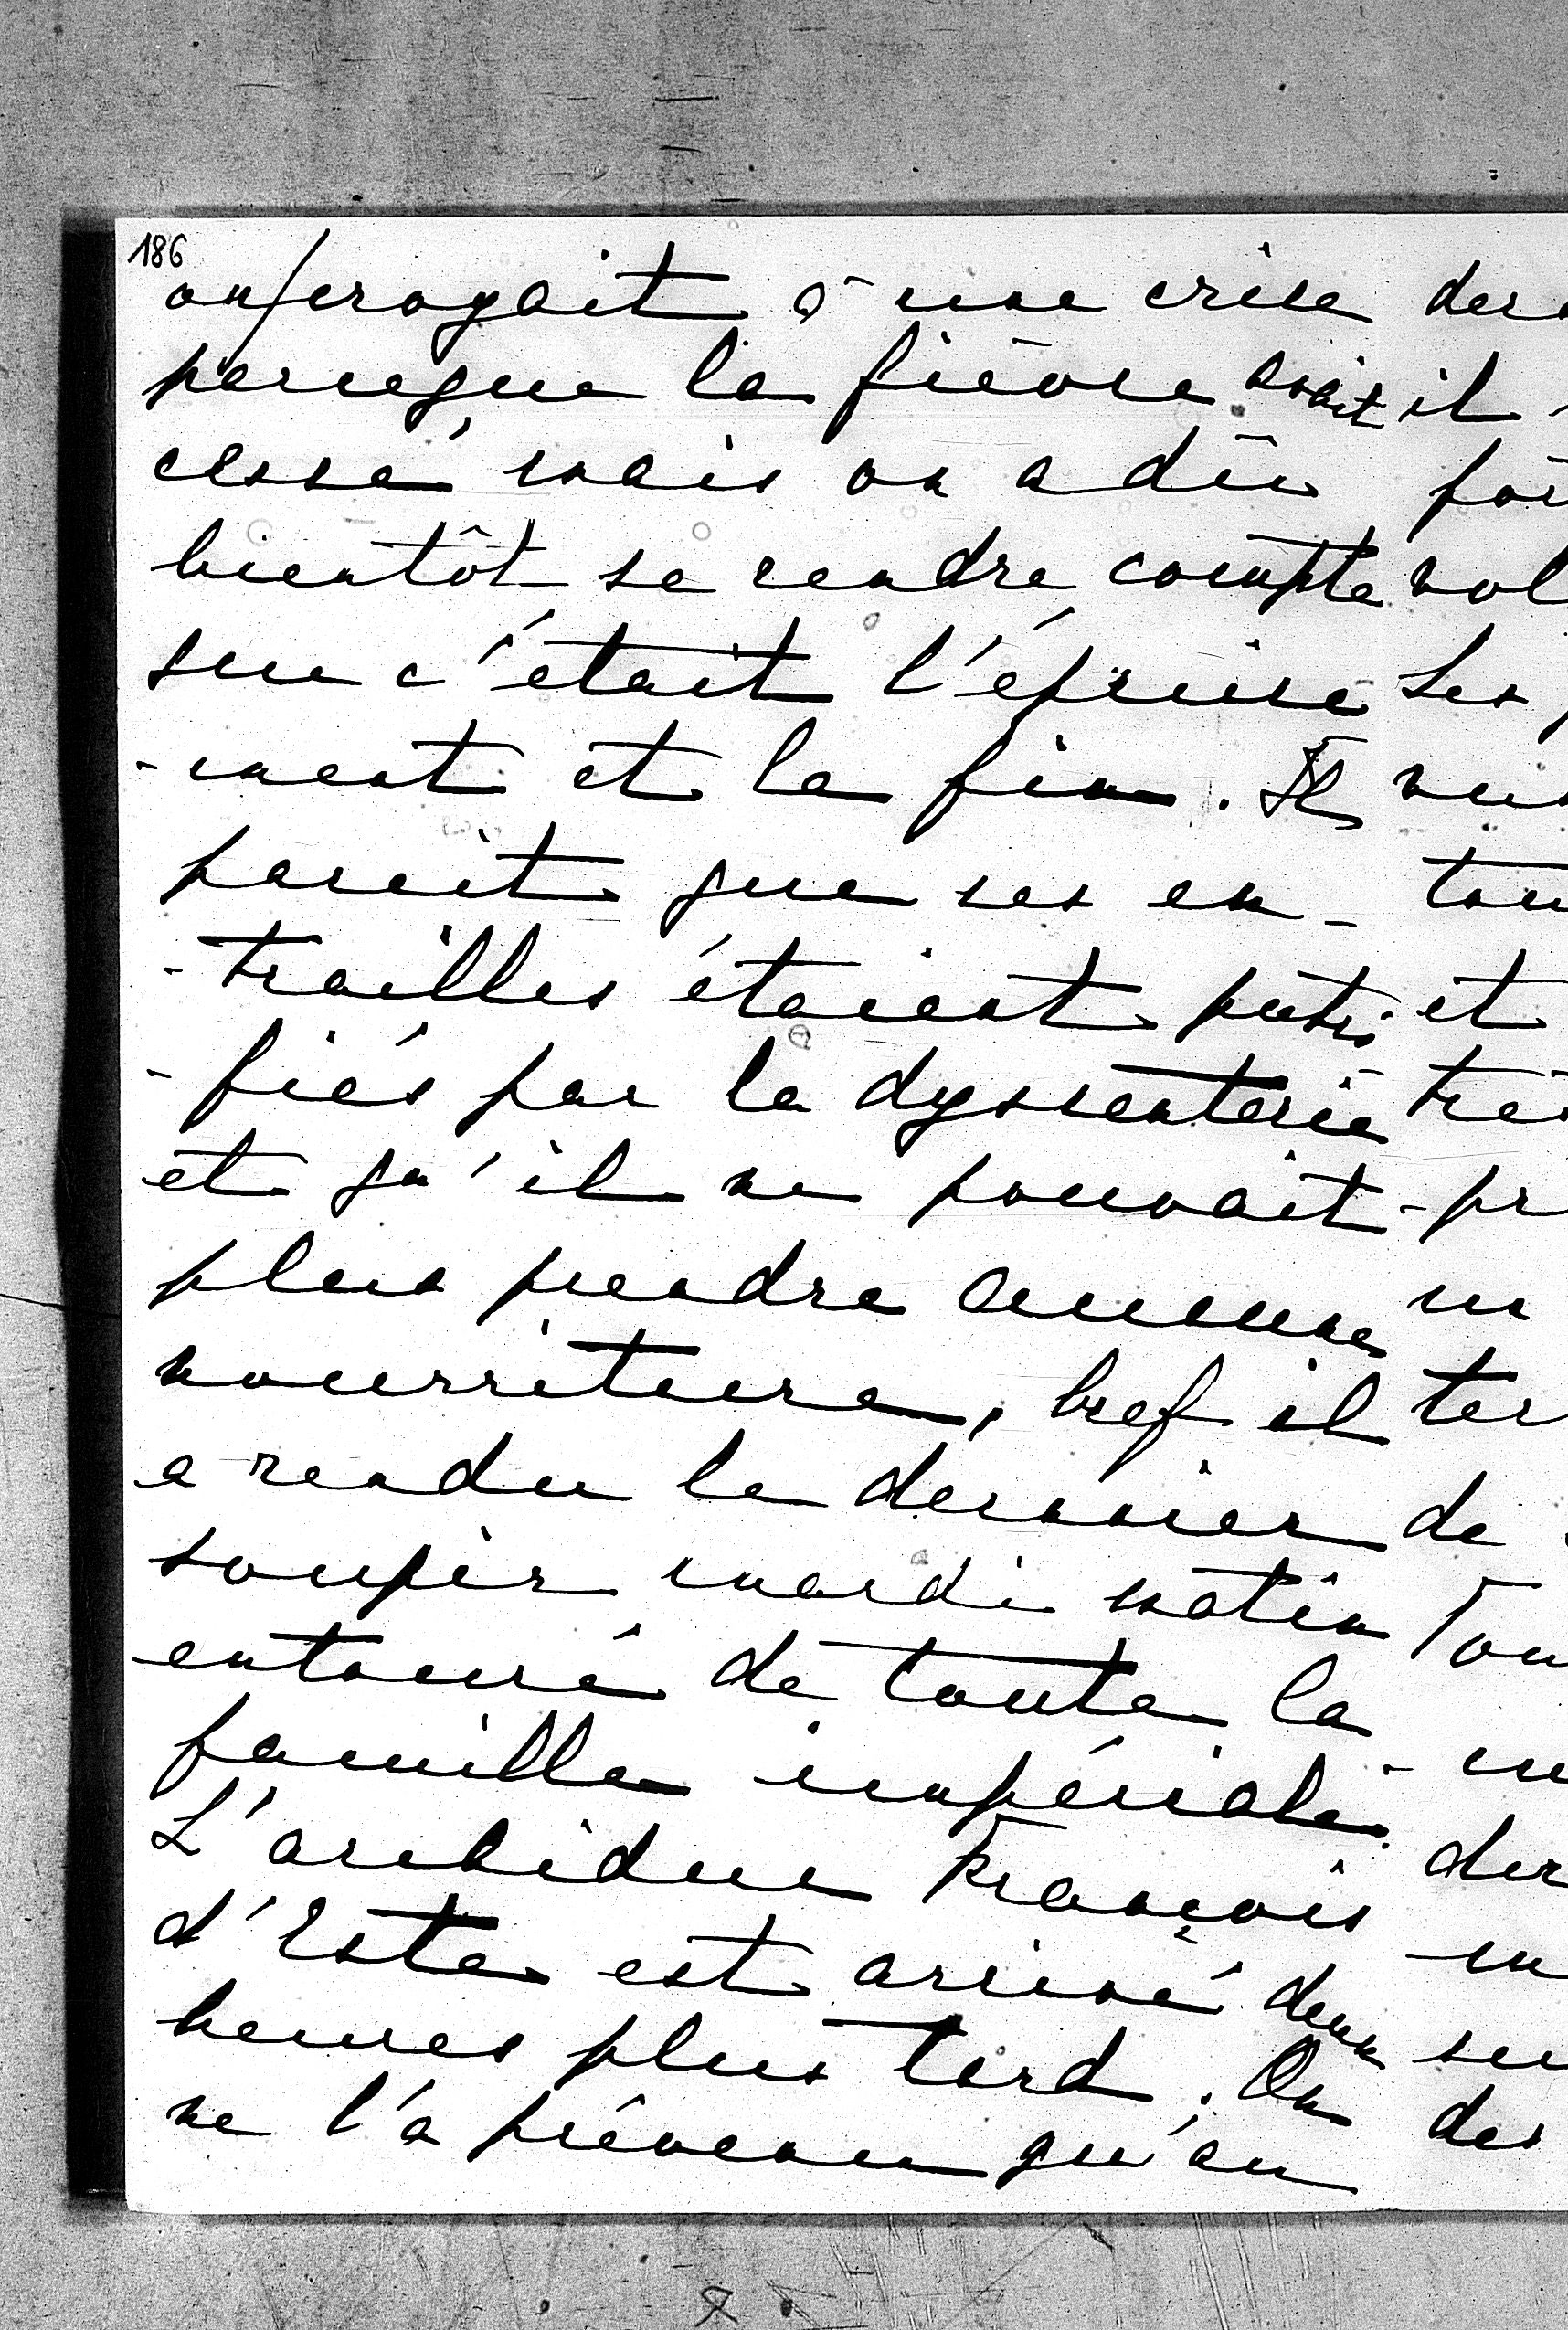 186
on/croyait à une crise
parceque la fièvre avait
cessé mais on a dû
bientôt se rendre compte
que c'était l'épuise
-ment et la fin. Il
parait que ses en-
-trailles étaient putri-
-fiés par la dyssenterie
et qu'il ne pouvait
plus prendre aucune
nourriture, bref il
a rendu le dernier
soupir mardi matin
entouré de toute la
famille impériale.
L'archiduc François
d'Este est arrivé deux
heures plus tard. On
ne l'a prévenu qu'au
il
vol
et
-pr
un
de
des